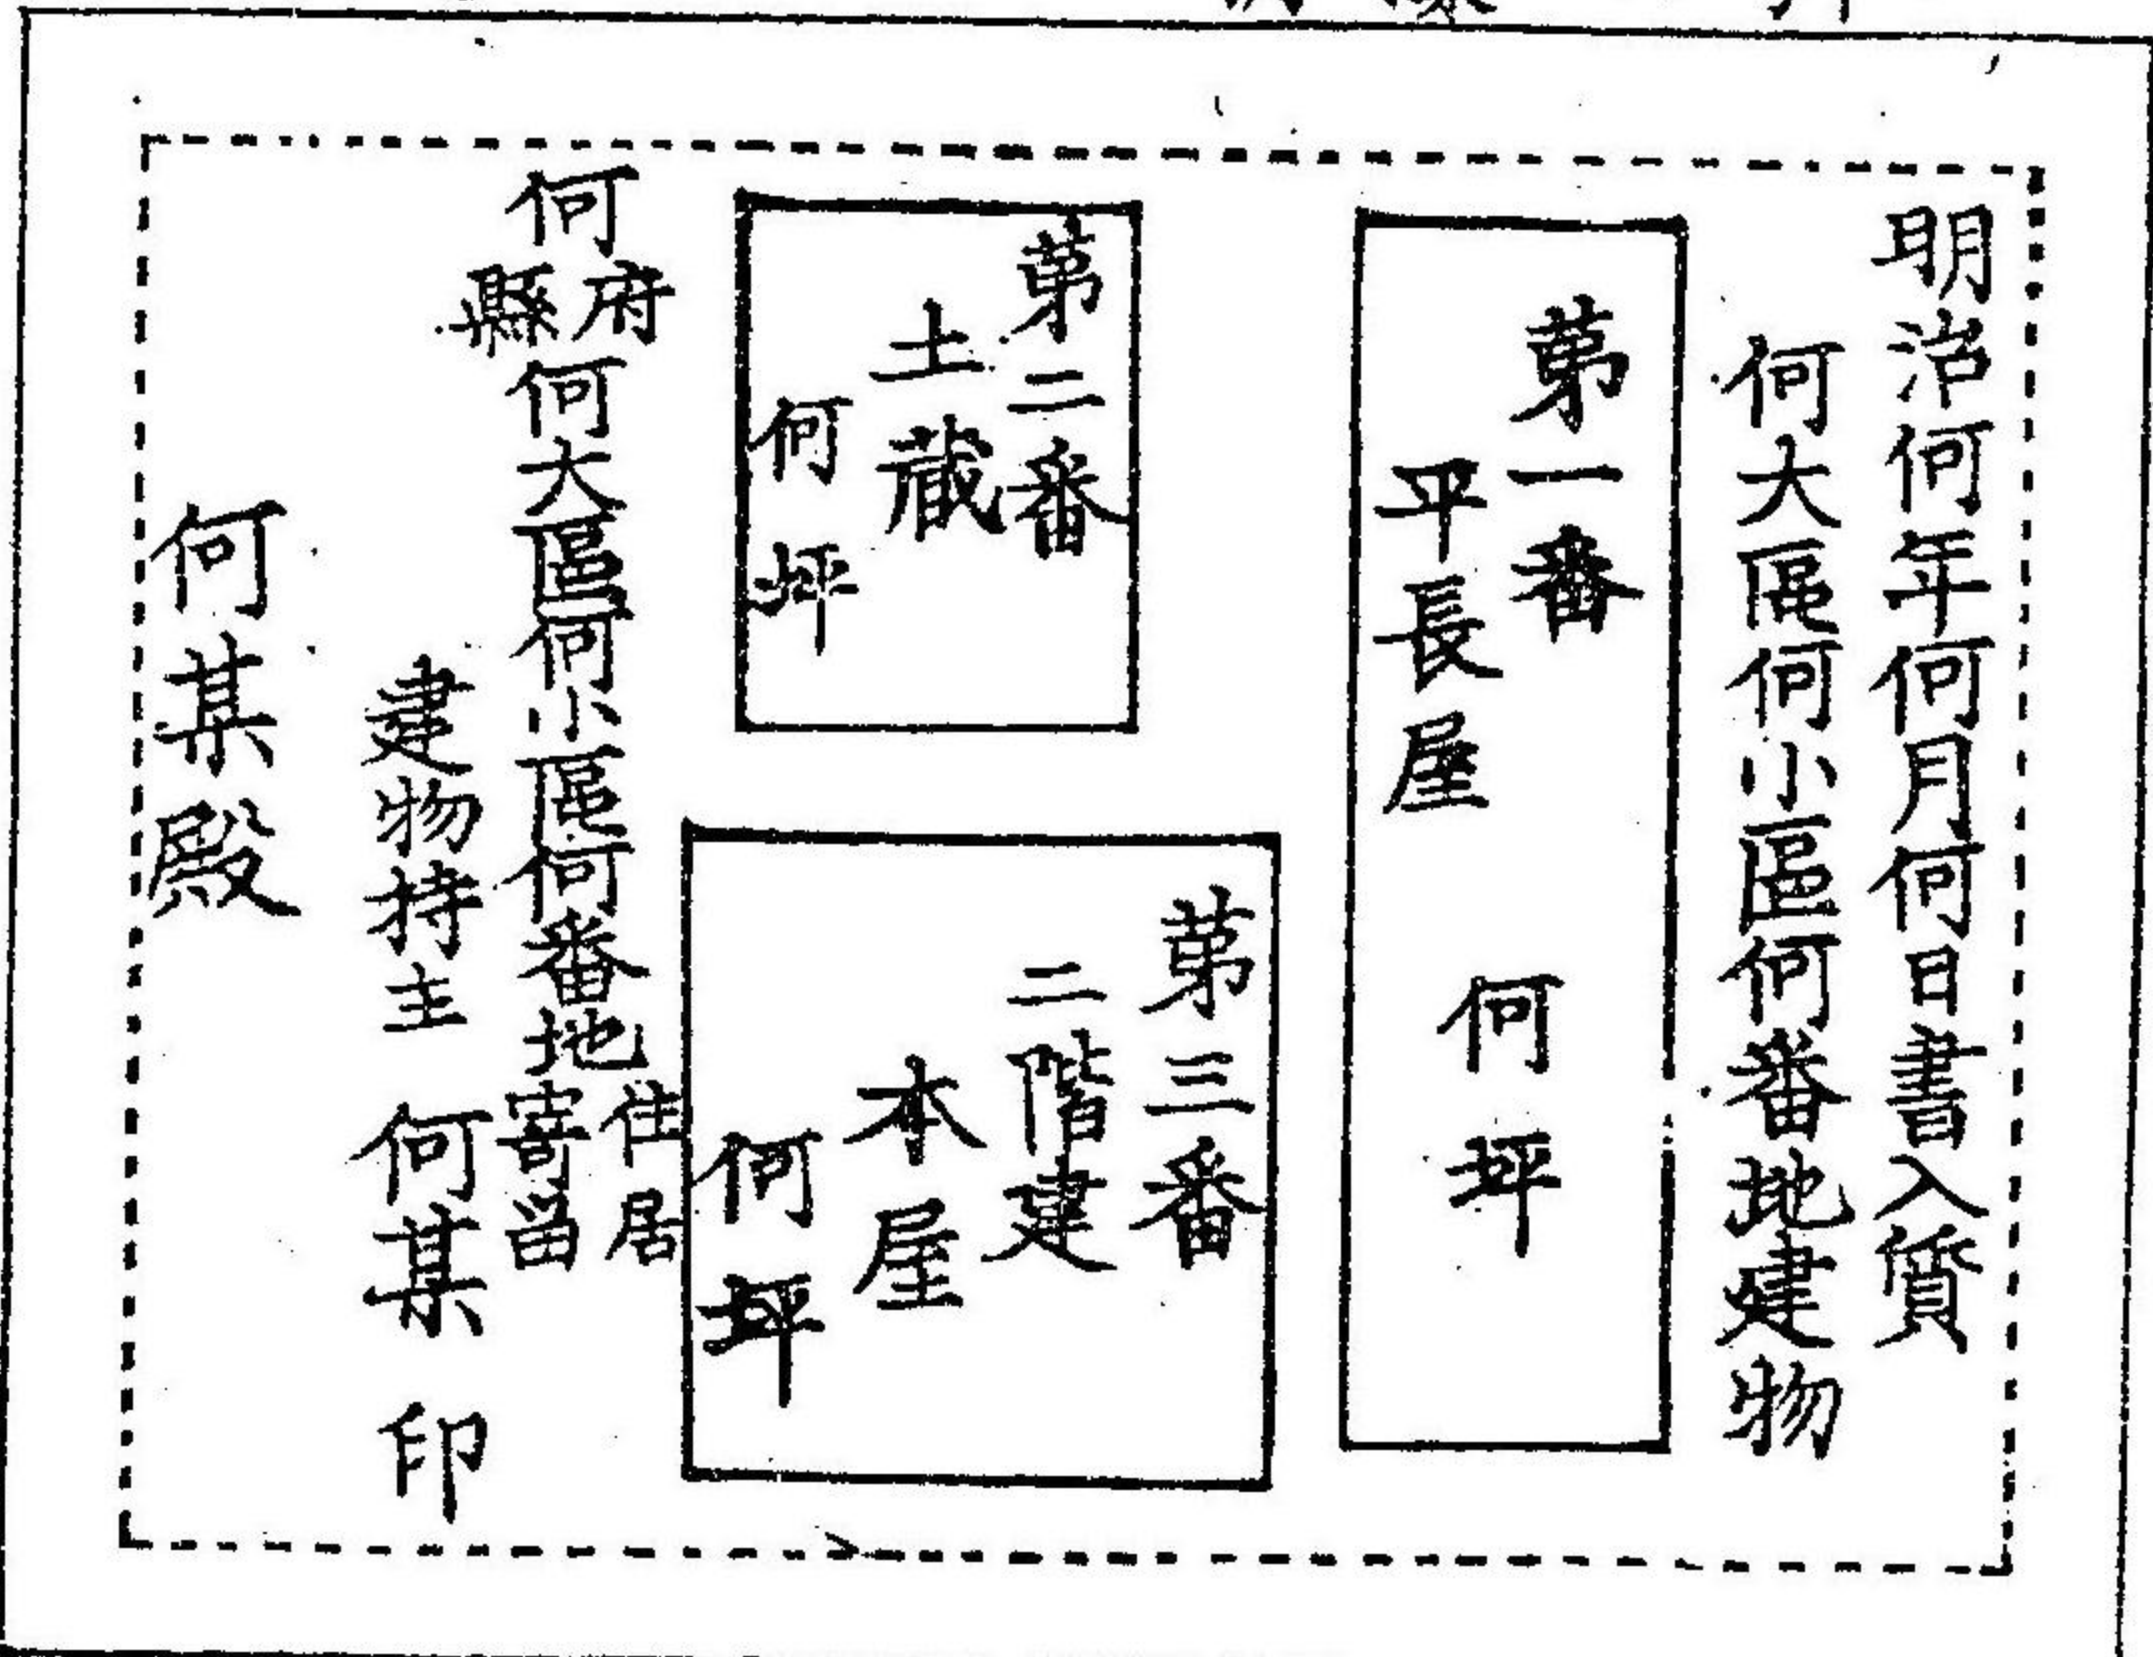 明治何年何月何日書入質
何大區何小區何番地建物
第一番
平長屋 何坪
第二番
土蔵
何坪
第三番
二階建
本屋
何坪
何府縣何大區何小區何番地住居寄留
建物持主 何某 印
何某殿